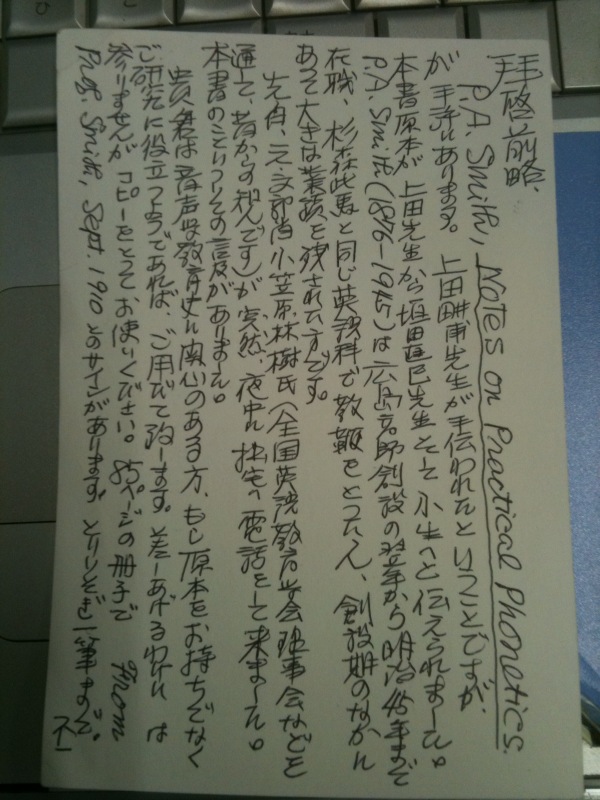 拝啓 前略、
P.A. Smith, Notes on Practical Phonetics.
が手許にあります。上田畊甫先生が手伝われたということですが、
本書原本が上田先生から垣田直巳先生そして小生へと伝えられました。
P.A. Smith (1876-1945) は広島高師創設の翌年から明治45年まで
在職、杉森此馬と同じ英語科で教鞭をとった人、創設期のなかに
あって大きな業績を残された方です。
先日、元文部省小笠原林樹氏(全国英語教育学会理事会などを
通じて、昔からの知人です)が突然、夜中に拙宅へ電話をして来ました。
本書のことについての言及がありました。
貴兄は音声学教育史に関心のある方、もし原本をお持ちでなく
ご研究に役立つようであれば、ご用立て致します。差しあげるわけには
参りませんがコピーをとってお使いください。85ページの冊子で From
Prof. Smith, Sept. 1910 とのサインがあります。とりいそぎ一筆まで。
不一